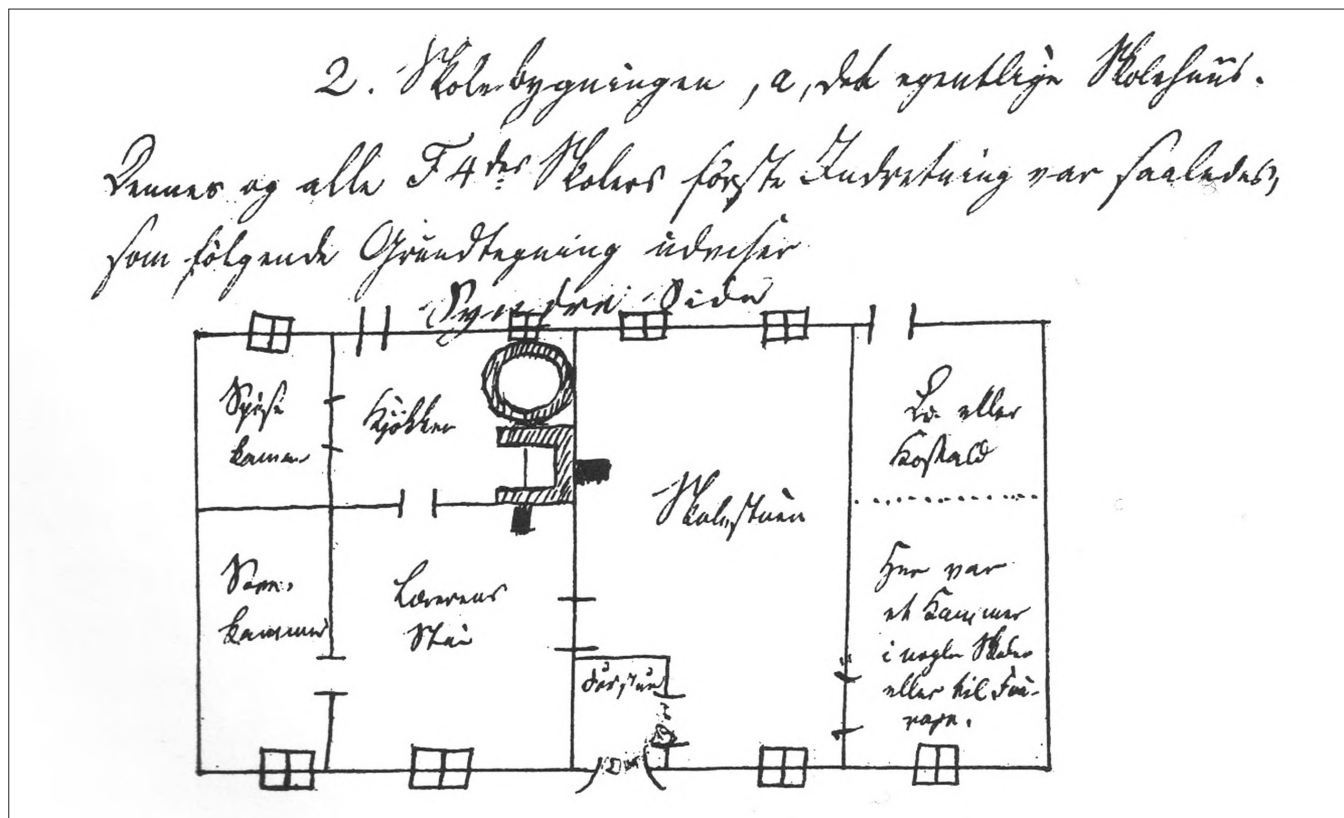 2. Skolebygningen, a, det egentlige Skolehuus.
Dennes og alle F 4des Skolers første Indretning var saaledes,
som følgende Grundtegning udviser
Syndre Side
Spise
kammer
Kjøkken
Sove-
kammer
Lærerens
Stue
Skolestuen
Forstue
Dør
Dør
Lo eller
Kostald
Her var
et Kammer
i nogle Skoler
eller til Fou-
rage.